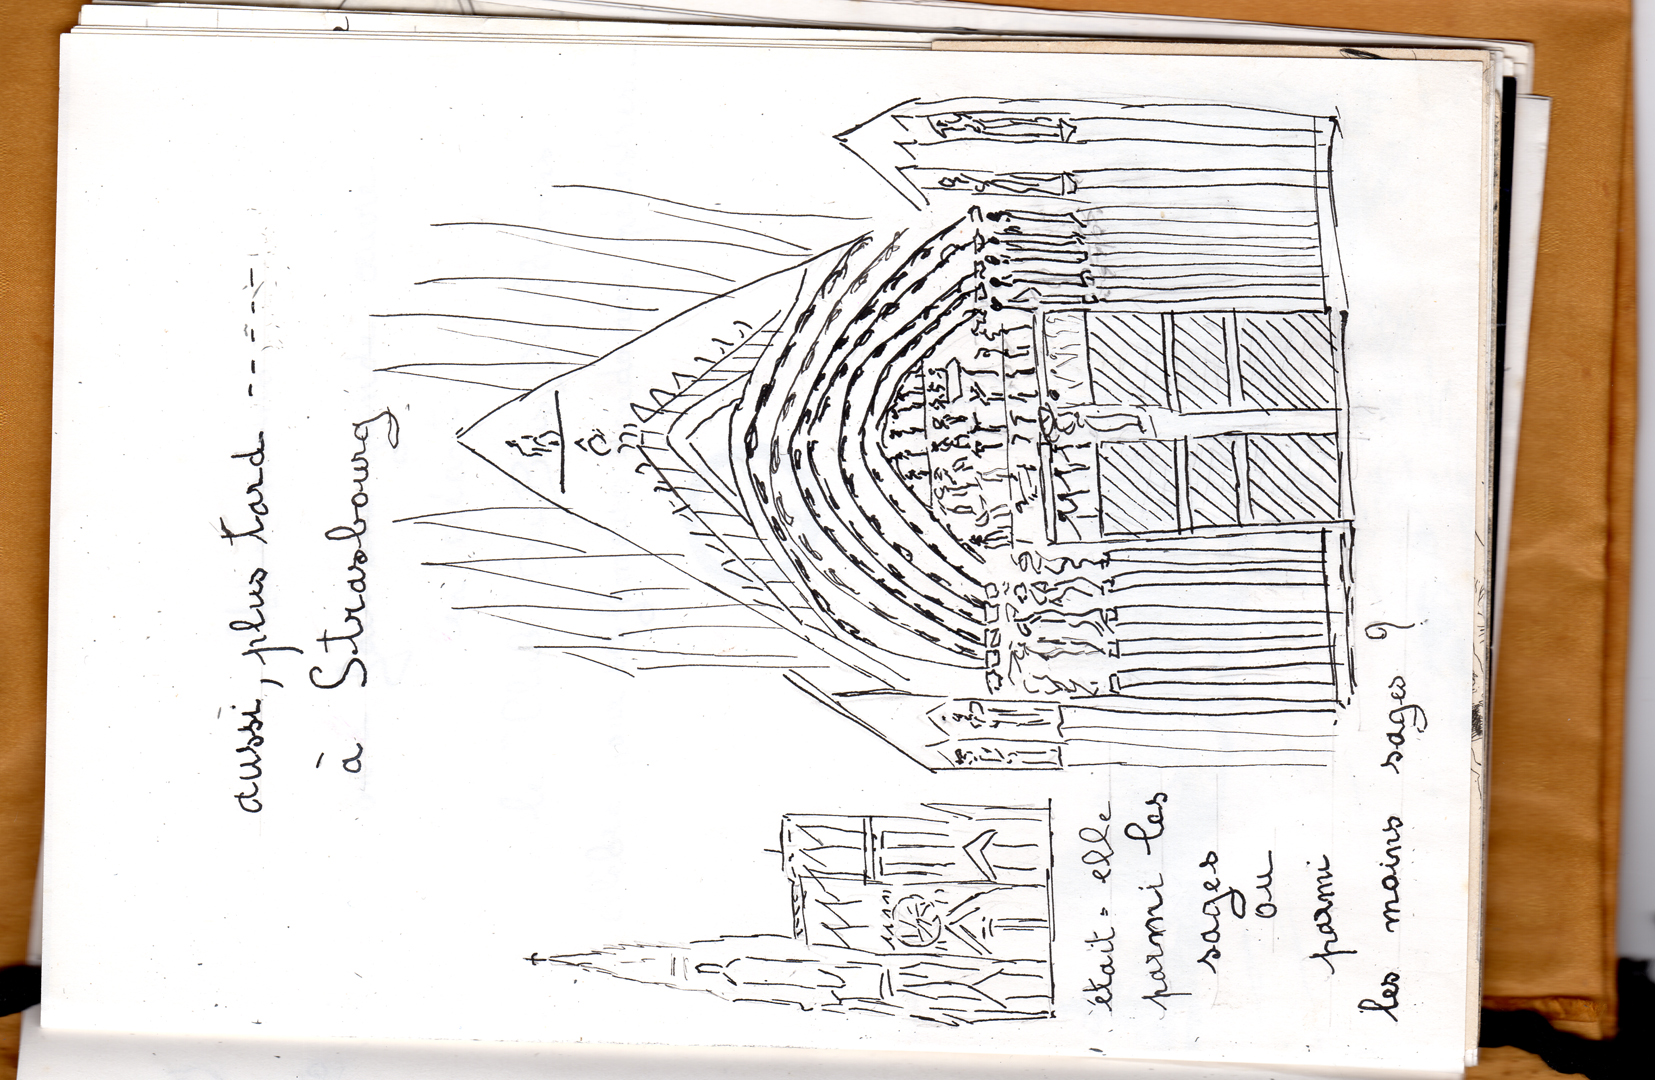 aussi, plus tard -----
à Strasbourg
était-elle
parmi les
sages
ou
parmi
les moins sages ?